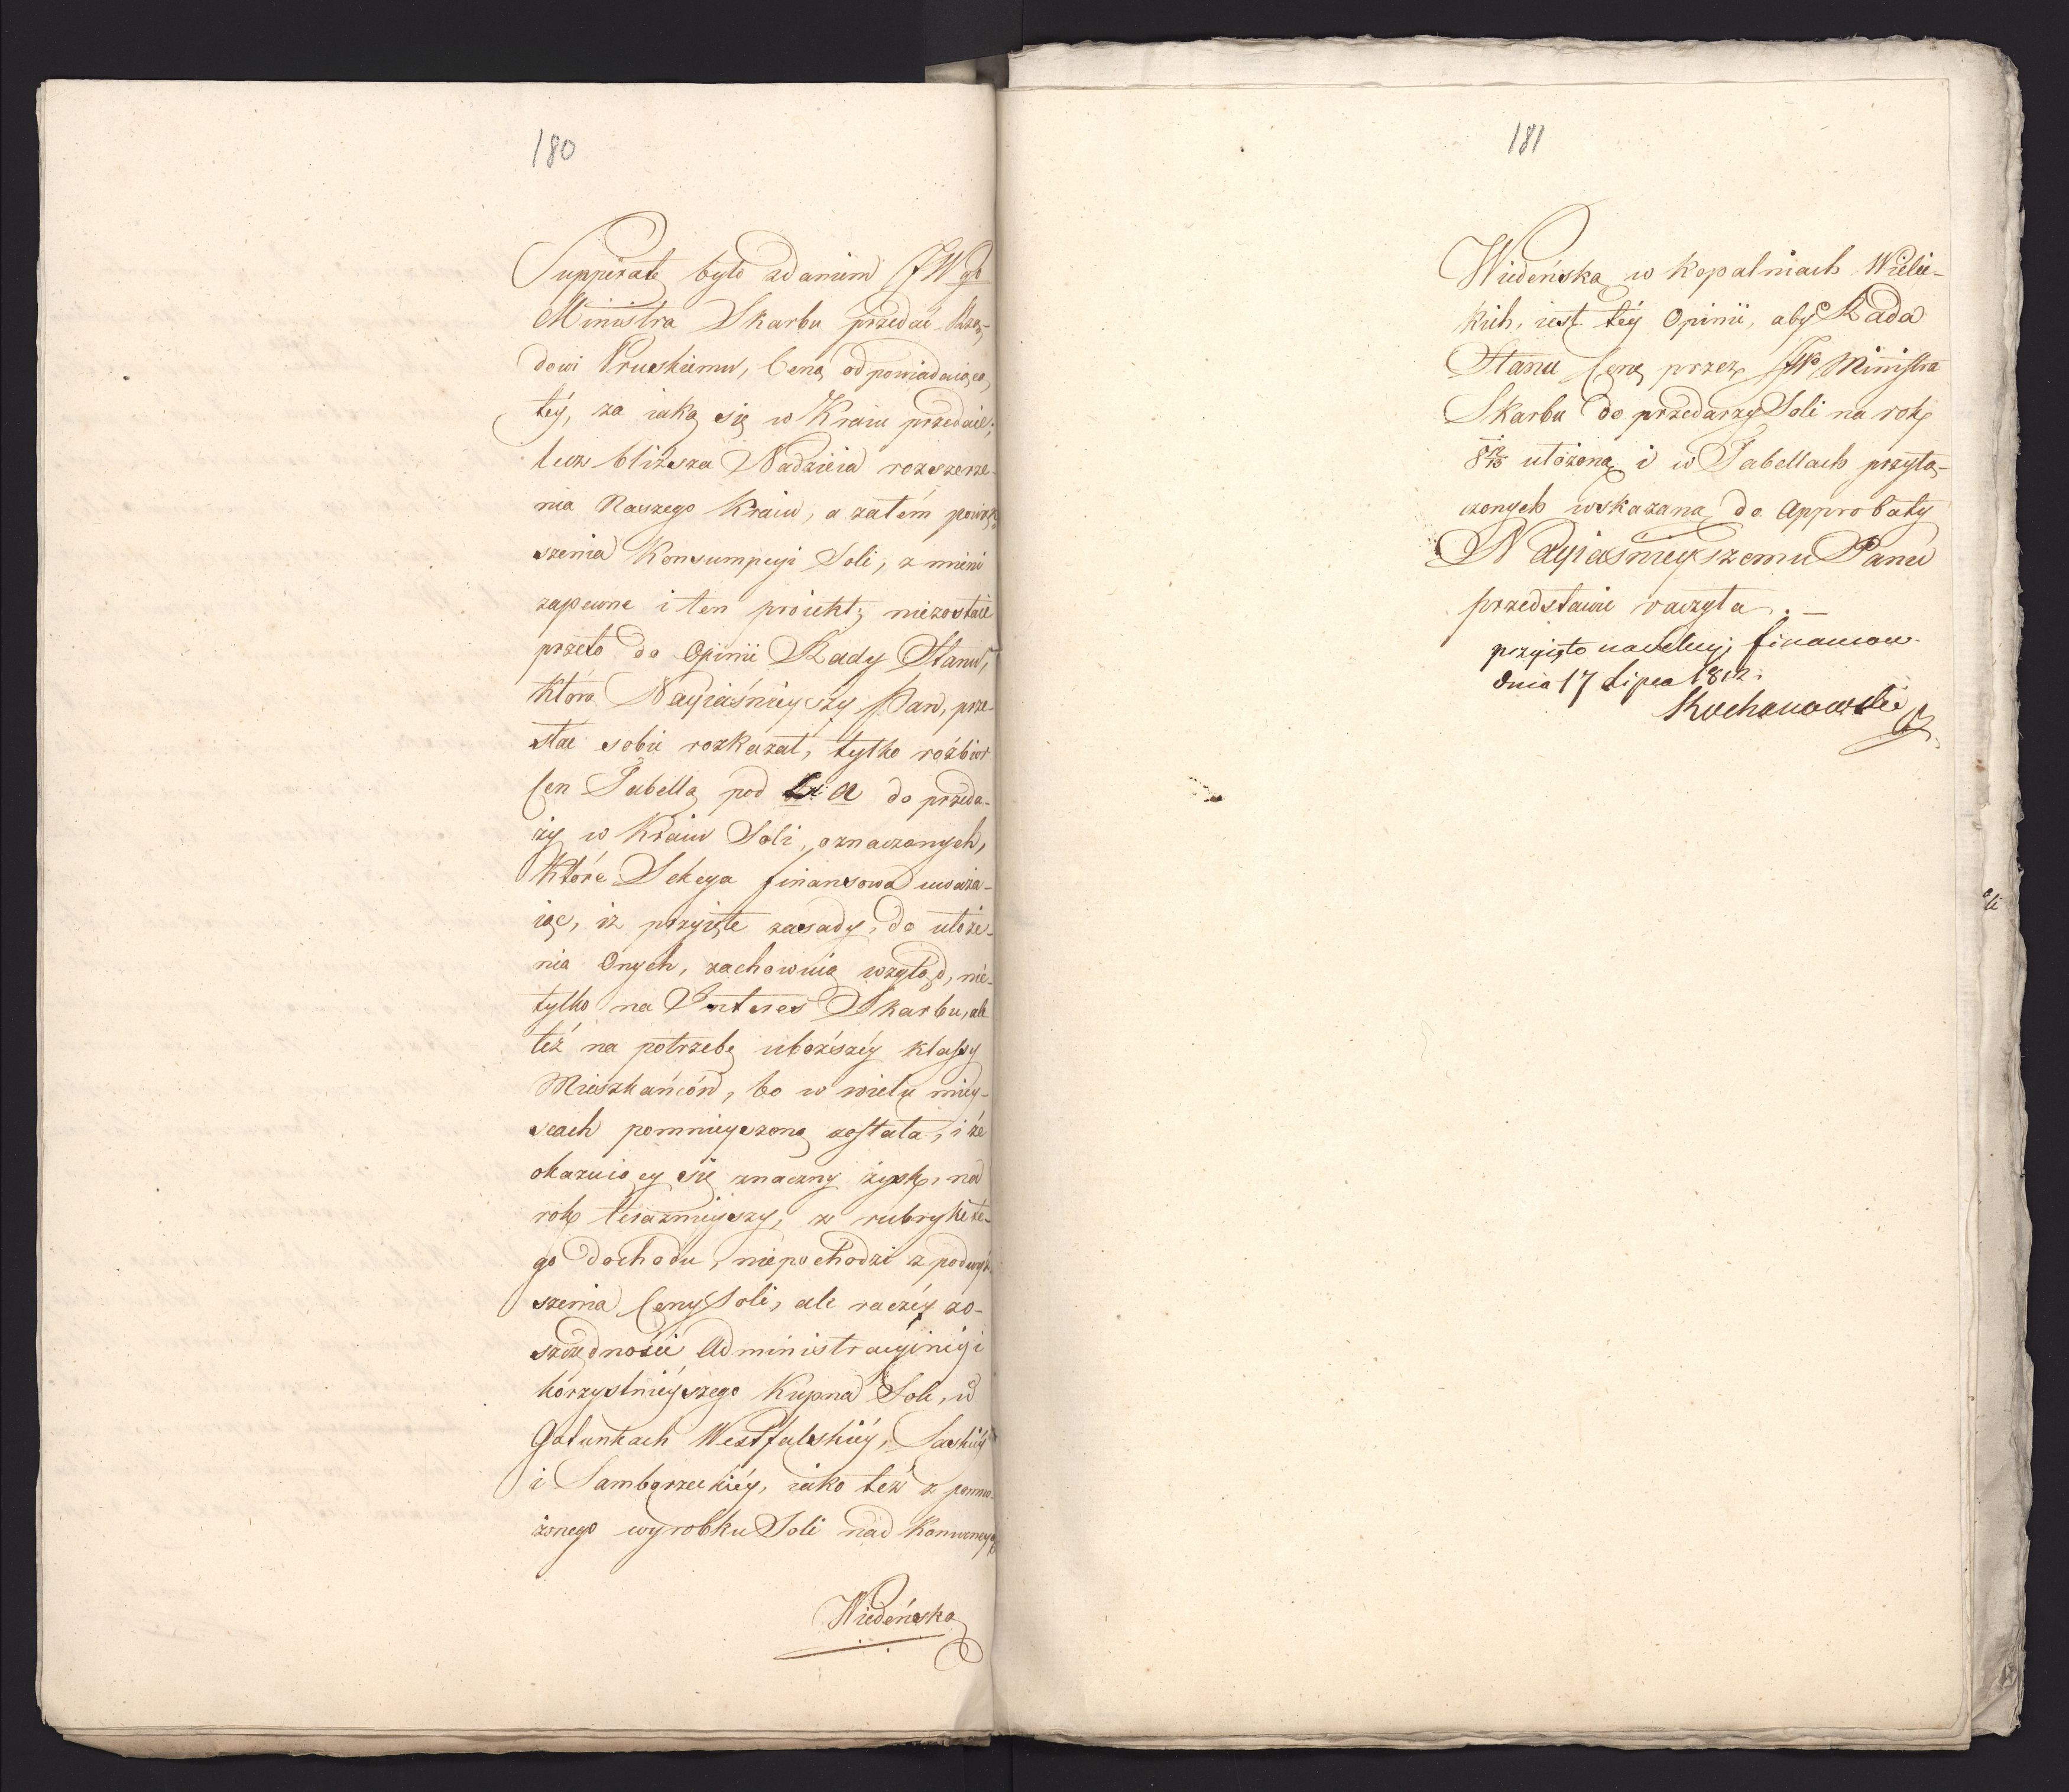 180
Supperatę było zdaniem JWgo
Ministra Skarbu przedać Rzą-
dowi Pruskiemu, Ceną odpowiadaiącą
téy, za iaką się w Kraiu przedaie;
lecz bliższa Nadzieia rozszerze-
nia Naszego Kraiu, a zatém powięk
szenia Konsumpcyi Soli, z mieni
zapewne i ten proiekt; niezostaie
przeto do Opinii Rady Stanu,
którą Nayiaśnieyszy Pan, prze-
słać sobie rozkazał, tylko rozbiór
Cen Tabellą pod Lit a do przeda-
ży w Kraiu Soli, oznaczonych,
Które Sekcya finansowa uważa-
iąc, iż przyięte zasady, do ułoże-
nia Onych, zachowuią wzgląd, nie-
tylko na Interes Skarbu, ale
też na potrzebę uboższéy klassy
Mieszkańców, bo w wielu miey-
scach pomnieyszoną została, i że
okazuiący się znaczny zysk, nad
rok teraźnieyszy, w rubryke te-
go dochodu, niepochodzi z podwyż-
szenia Ceny Soli, ale raczéy z o-
szczędności Administracyinéy i
korzystnieyszego Kupna Soli, w
Gatunkach Westfalskiéy, Saskiéy
i Samborzeckiéy, iako też z pomno-
żonego wyrobku Soli nad Konwencyą
Wiedeńską
181
Wiedeńską w kopalniach Wielic-
kich, iest téy Opinii, aby Rada
Stanu Cenę przez JWo Ministra
Skarbu do przedarzy Soli na rok
18 12/13 ułożoną i w Tabellach przyłą-
czonych wskazaną do Approbaty
Nayiaśnieyszemu Panu
przedstawić raczyła. —
przyięto na Sekcyi finansow.
dnia 17 Lipca 1812.
Kochanowski